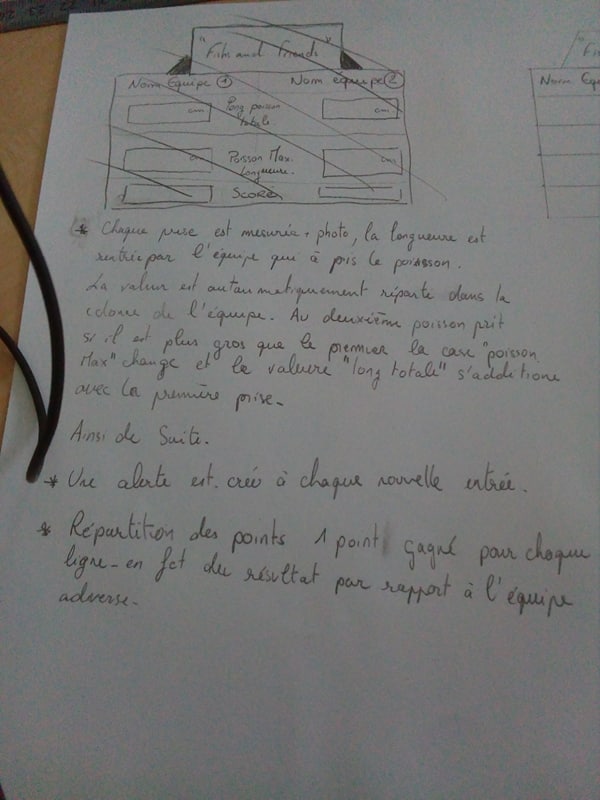 "Fish and Friends"
Nom Equipe 1 Nom équipe 2
cm Long poisson cm
totale.
cm Poisson Max. cm
Longueure.
SCORE
Nom Equ
* Chaque prise est mesurée + photo, la longueure est
rentrée par l'équipe qui à pis le poisson.
La valeur est automatiquement réparte dans la
colonne de l'équipe. Au deuxième poisson prit
si il est plus gros que le premier la case "poisson
Max" change et la valeure "long totale" s'additione
avec la première prise.
Ainsi de Suite.
* Une alerte est créé à chaque nouvelle entrée.
* Répartition des points 1 point gagné pour chaque
ligne - en fct du résultat par rapport à l'équipe
adverse.